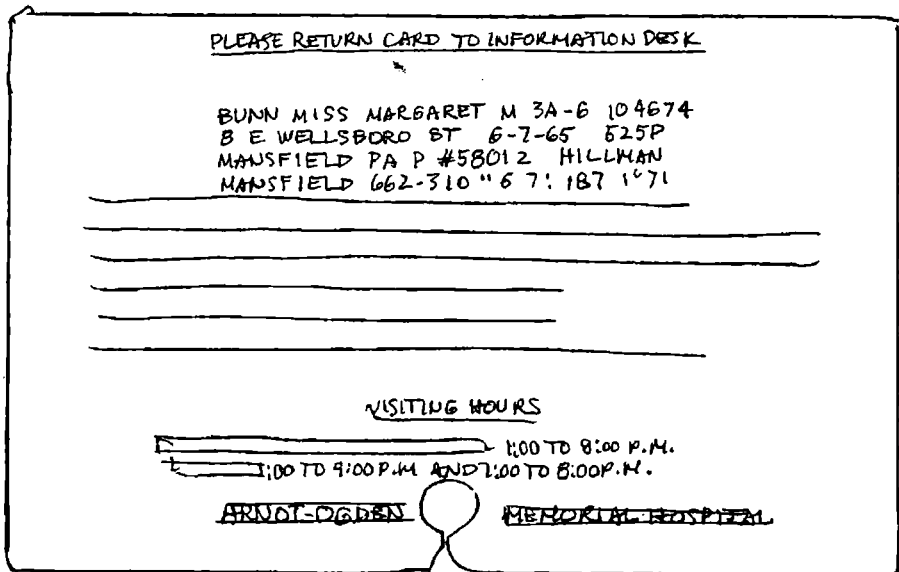 PLEASE RETURN CARD TO INFORMATION DESK
BUNN MISS MARGARET M 3A-6 104674
8 E WELLSBORO ST 6-7-65 525P
MANSFIELD PA P #58012 HILLMAN
MANSFIELD 662-310 " 6 7: 187 1"71
VISITING HOURS
1:00 TO 8:00 P.M.
1:00 TO 4:00 P.M AND 7:00 TO 8:00 P.M.
ARNOT-OGDEN MEMORIAL HOSPITAL